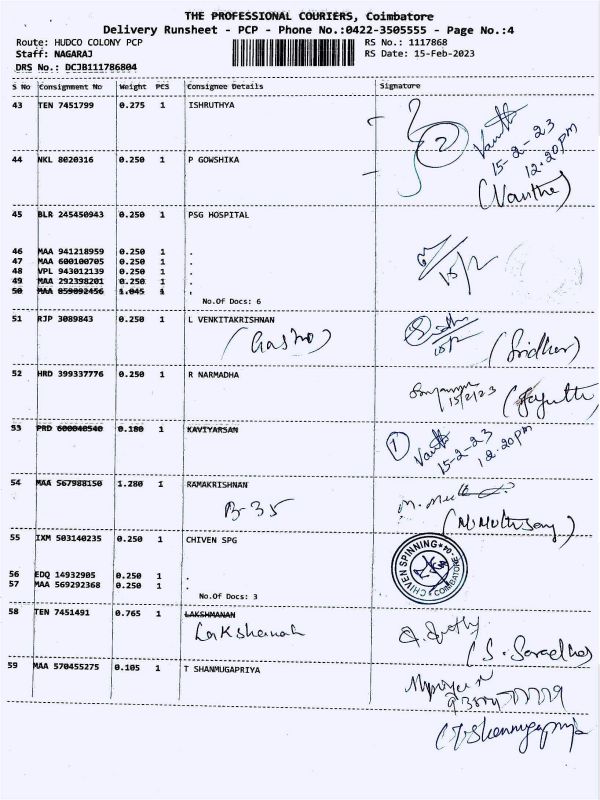 THE PROFESSIONAL COURIERS, Coimbatore
Delivery Runsheet - PCP - Phone No.:0422-3505555 - Page No.:4
Route: HUDCO COLONY PCP
RS No.: 1117868
Staff: NAGARAJ
RS Date: 15-Feb-2023
DRS No.: DCJB111786804
S No Consignment No Weight PCS Consignee Details Signature
43 TEN 7451799 0.275 1 ISHRUTHYA
2
15-2-23
12.20pm
44 NKL 8020316 0.250 1 P GOWSHIKA
(Vantha)
45 BLR 245450943 0.250 1 PSG HOSPITAL
46 MAA 941218959 0.250 1 .
47 MAA 600100705 0.250 1 .
48 VPL 943012139 0.250 1 .
49 MAA 292398201 0.250 1 .
50 MAA 859092456 1.045 1 .
15/2
No.Of Docs: 6
51 RJP 3089843 0.250 1 L VENKITAKRISHNAN
(Gastro)
15/2
(Sridhar)
52 HRD 399337776 0.250 1 R NARMADHA
15/2/23
53 PRD 600040540 0.180 1 KAVIYARSAN
1
15-2-23
12.20pm
54 MAA 567988150 1.280 1 RAMAKRISHNAN
B-35
55 IXM 503140235 0.250 1 CHIVEN SPG
CHIVEN SPINNING
COIMBATORE
56 EDQ 14932905 0.250 1 .
57 MAA 569292368 0.250 1 .
No.Of Docs: 3
58 TEN 7451491 0.765 1 LAKSHMANAN
Lakshanah
59 MAA 570455275 0.105 1 T SHANMUGAPRIYA